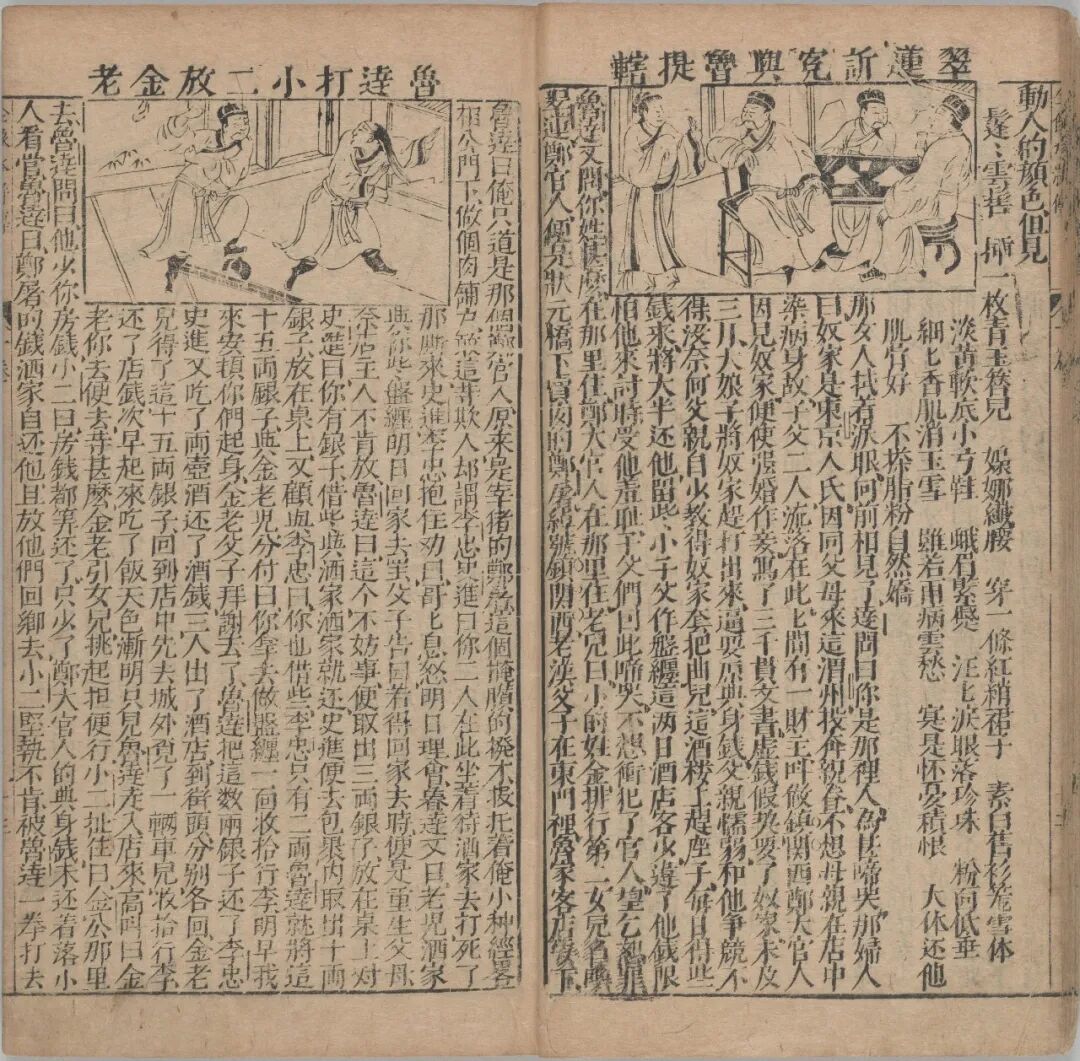 翠蓮訴冤與魯提轄
動人的顏色但見
鬆〻雲髻插一枚青玉簪兒　嬝娜纖腰　穿一條紅綃裙子　素白舊衫籠雪体
淡黃軟底小弓鞋　蛾眉緊蹙　汪匕淚眼落珍珠　粉向低垂
細匕香肌消玉雪　雖若雨病雲愁　寔是怀憂積恨　大体还他
肌骨好　不搽脂粉自然嬌
那女人拭着淚眼向前相見了達問曰你是那裡人為甚啼哭那婦人
曰奴家是東京人氏因同父母來這渭州投奔親眷不想母親在店中
染病身故子父二人流落在此匕間有一財主呌做鎮関西鄭大官人
因見奴家便使强婚作妾寫了三千貫文書虚錢假契要了奴家未及
三月大娘子將奴家趕打出來逼要原典身錢父親懦弱和他争競不
得没奈何父親自少教得奴家套把曲兒這酒楼上趕座子每日得些
錢來將大半还他畱此小子父作盤纏這两日酒店客少違了他錢限
怕他來討時受他羞耻子父們囬此啼哭不想衝犯了官人望乞恕罪
魯達又問你姓甚麽在那里住鄭大官人在那里住老兒曰小的姓金排行第一女兒名喚
翠蓮鄭官人便是狀元橋下賣肉的鄭屠綽號鎮関西老漢父子在東門裡魯家客店安下
魯達打小二放金老
魯達曰俺只道是那個鄭官人原来是宰猪的鄭屠這個腌臢的撥才投托着俺小种經畧
相公門下做個肉鋪户却這等欺人却謂李忠史進曰你二人在此坐着待酒家去打死了
那厮來史進李忠抱住劝曰哥匕息怒明日理會魯達又曰老児酒家
與你些盤纏明日回家去罢父子告曰若得回家去時便是重生父母
奈店主人不肯放魯達曰這个不妨事便取出三両銀子放在桌上对
史進曰你有銀子借些與酒家酒家就还史進便去包裹内取出十両
銀子放在桌上又顧看李忠曰你也借些李忠只有二両魯達就將這
十五両銀子與金老児分付曰你拿去做盤纏一向收拾行李明早我
來安頓你們起身金老父子拜謝去了魯達把這数両銀子还了李忠
史進又吃了両壺酒还了酒錢三人出了酒店到街頭分別各回金老
兒得了這十五両銀子回到店中先去城外覓了一輛車兒收拾行李
还了店錢次早起來吃了飯天色漸明只見魯達走入店來高呌曰金
老你去便去等甚麽金老引女兒挑起担便行小二扯住曰金公那里
去魯達問曰他少你房錢小二曰房錢都筭还了只少了鄭大官人的典身錢未还着落小
人看管魯達曰鄭屠的錢洒家自还他且放他們回鄉去小二堅執不肯被魯達一拳打去